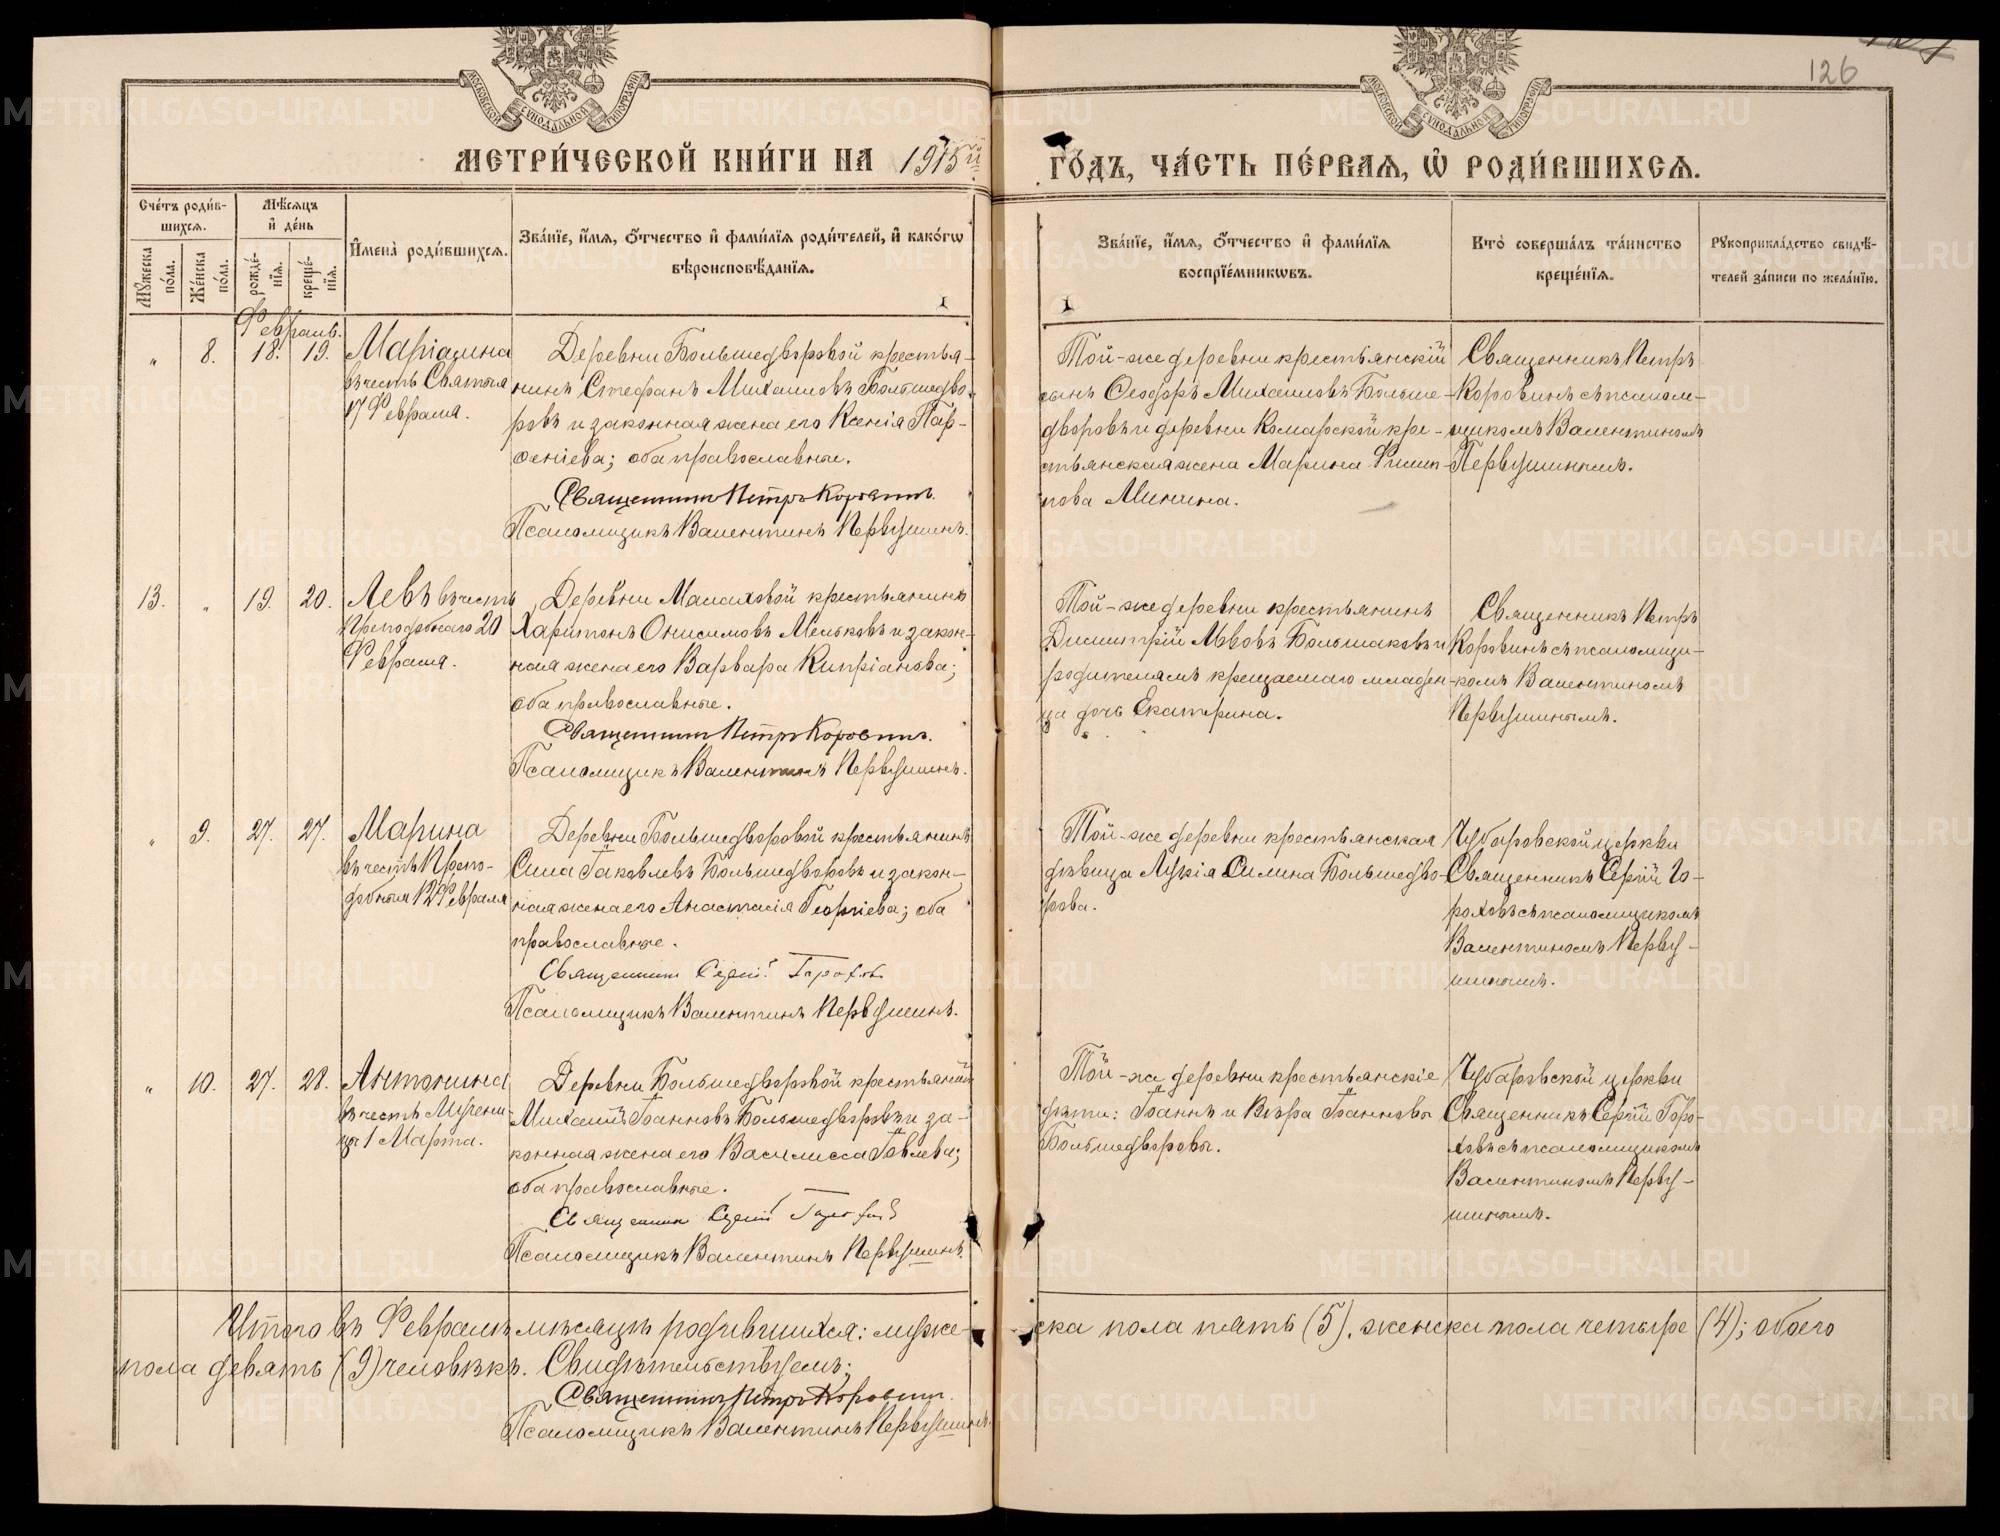 126
МОСКОВСКОЙ СѴНОДАЛЬНОЙ ТИПОГРАФІИ
МОСКОВСКОЙ СѴНОДАЛЬНОЙ ТИПОГРАФІИ
МЕТРИ́ЧЕСКОЙ КНИ́ГИ НА 1915й ГО́ДЪ, ЧА́СТЬ ПЕ́РВАѦ, Ѽ РОДИ́ВШИХСѦ.
Сче́тъ роди́в-
шихсѧ.
Мꙋжеска по́ла.
Же́нска по́ла.
Мѣ́сѧцъ
и҆ де́нь
рожде́-
нїѧ.
креще́-
нїѧ.
И҆мена̀ роди́вшихсѧ.
Зва́нїе, и҆́мѧ, ѻ҆́тчество и҆ фами́лїѧ роди́телей, и҆ како́гѡ
вѣроисповѣ́данїѧ.
Зва́нїе, и҆́мѧ, ѻ҆́тчество и҆ фами́лїѧ
воспрїе́мникѡвъ.
Кто̀ соверша́лъ та́инство
креще́нїѧ.
Рꙋкоприкла́дство свидѣ́-
телей за́писи по жела́нїю.
Февраль.
„ 8. 18. 19.
Маріамна
въ честь Святыя
17 Февраля.
Деревни Большедворовой крестья-
нинъ Стефанъ Михаиловъ Большедво-
ровъ и законная жена его Ксенія Пар-
ѳеніева; оба православные.
Священникъ Петръ Коровинъ.
Псаломщикъ Валентинъ Первушинъ.
Той-же деревни крестьянскій
сынъ Ѳеодоръ Михаиловъ Больше-
дворовъ и деревни Комарской кре-
стьянская жена Марина Филип-
пова Минина.
Священникъ Петръ
Коровинъ съ псалом-
щикомъ Валентиномъ
Первушинымъ.
13. „ 19. 20.
Левъ въ честь
Преподобнаго 20
Февраля.
Деревни Малаховой крестьянинъ
Харитонъ Онисимовъ Мельковъ и закон-
ная жена его Варвара Кипріанова;
оба православные.
Священникъ Петръ Коровинъ.
Псаломщикъ Валентинъ Первушинъ.
Той-же деревни крестьянинъ
Димитрій Львовъ Большаковъ и
родителямъ крещаемаго младен-
ца дочь Екатерина.
Священникъ Петръ
Коровинъ съ псаломщи-
комъ Валентиномъ
Первушинымъ.
„ 9. 27. 27.
Марина
въ честь Препо-
добныя 12 Февраля
Деревни Большедворовой крестьянинъ
Сила Іаковлевъ Большедворовъ и закон-
ная жена его Анастасія Георгіева; оба
православные.
Священник Сергій Гороховъ
Псаломщикъ Валентинъ Первушинъ.
Той-же деревни крестьянская
дѣвица Лукія Силина Большедво-
рова.
Чубаровской церкви
Священникъ Сергій Го-
роховъ съ псаломщикомъ
Валентиномъ Перву-
шинымъ.
„ 10. 27. 28.
Антонина
въ честь Мучени-
цы 1 Марта.
Деревни Большедворовой крестьянинъ
Михаилъ Іоанновъ Большедворовъ и за-
конная жена его Василисса Іовлева;
оба православные.
Священник Сергій Гороховъ
Псаломщикъ Валентинъ Первушинъ.
Той-же деревни крестьянскіе
дѣти: Іоаннъ и Вѣра Іоанновы
Большедворовы.
Чубаровской церкви
Священникъ Сергій Горо-
ховъ съ псаломщикомъ
Валентиномъ Перву-
шинымъ.
Итого въ Февралѣ мѣсяцѣ родившихся: муже-ска пола пять (5), женска пола четыре (4); обоего
пола девять (9) человѣкъ. Свидѣтельствуемъ:
Священникъ Петръ Коровинъ.
Псаломщикъ Валентинъ Первушинъ.
METRIKI.GASO-URAL.RU